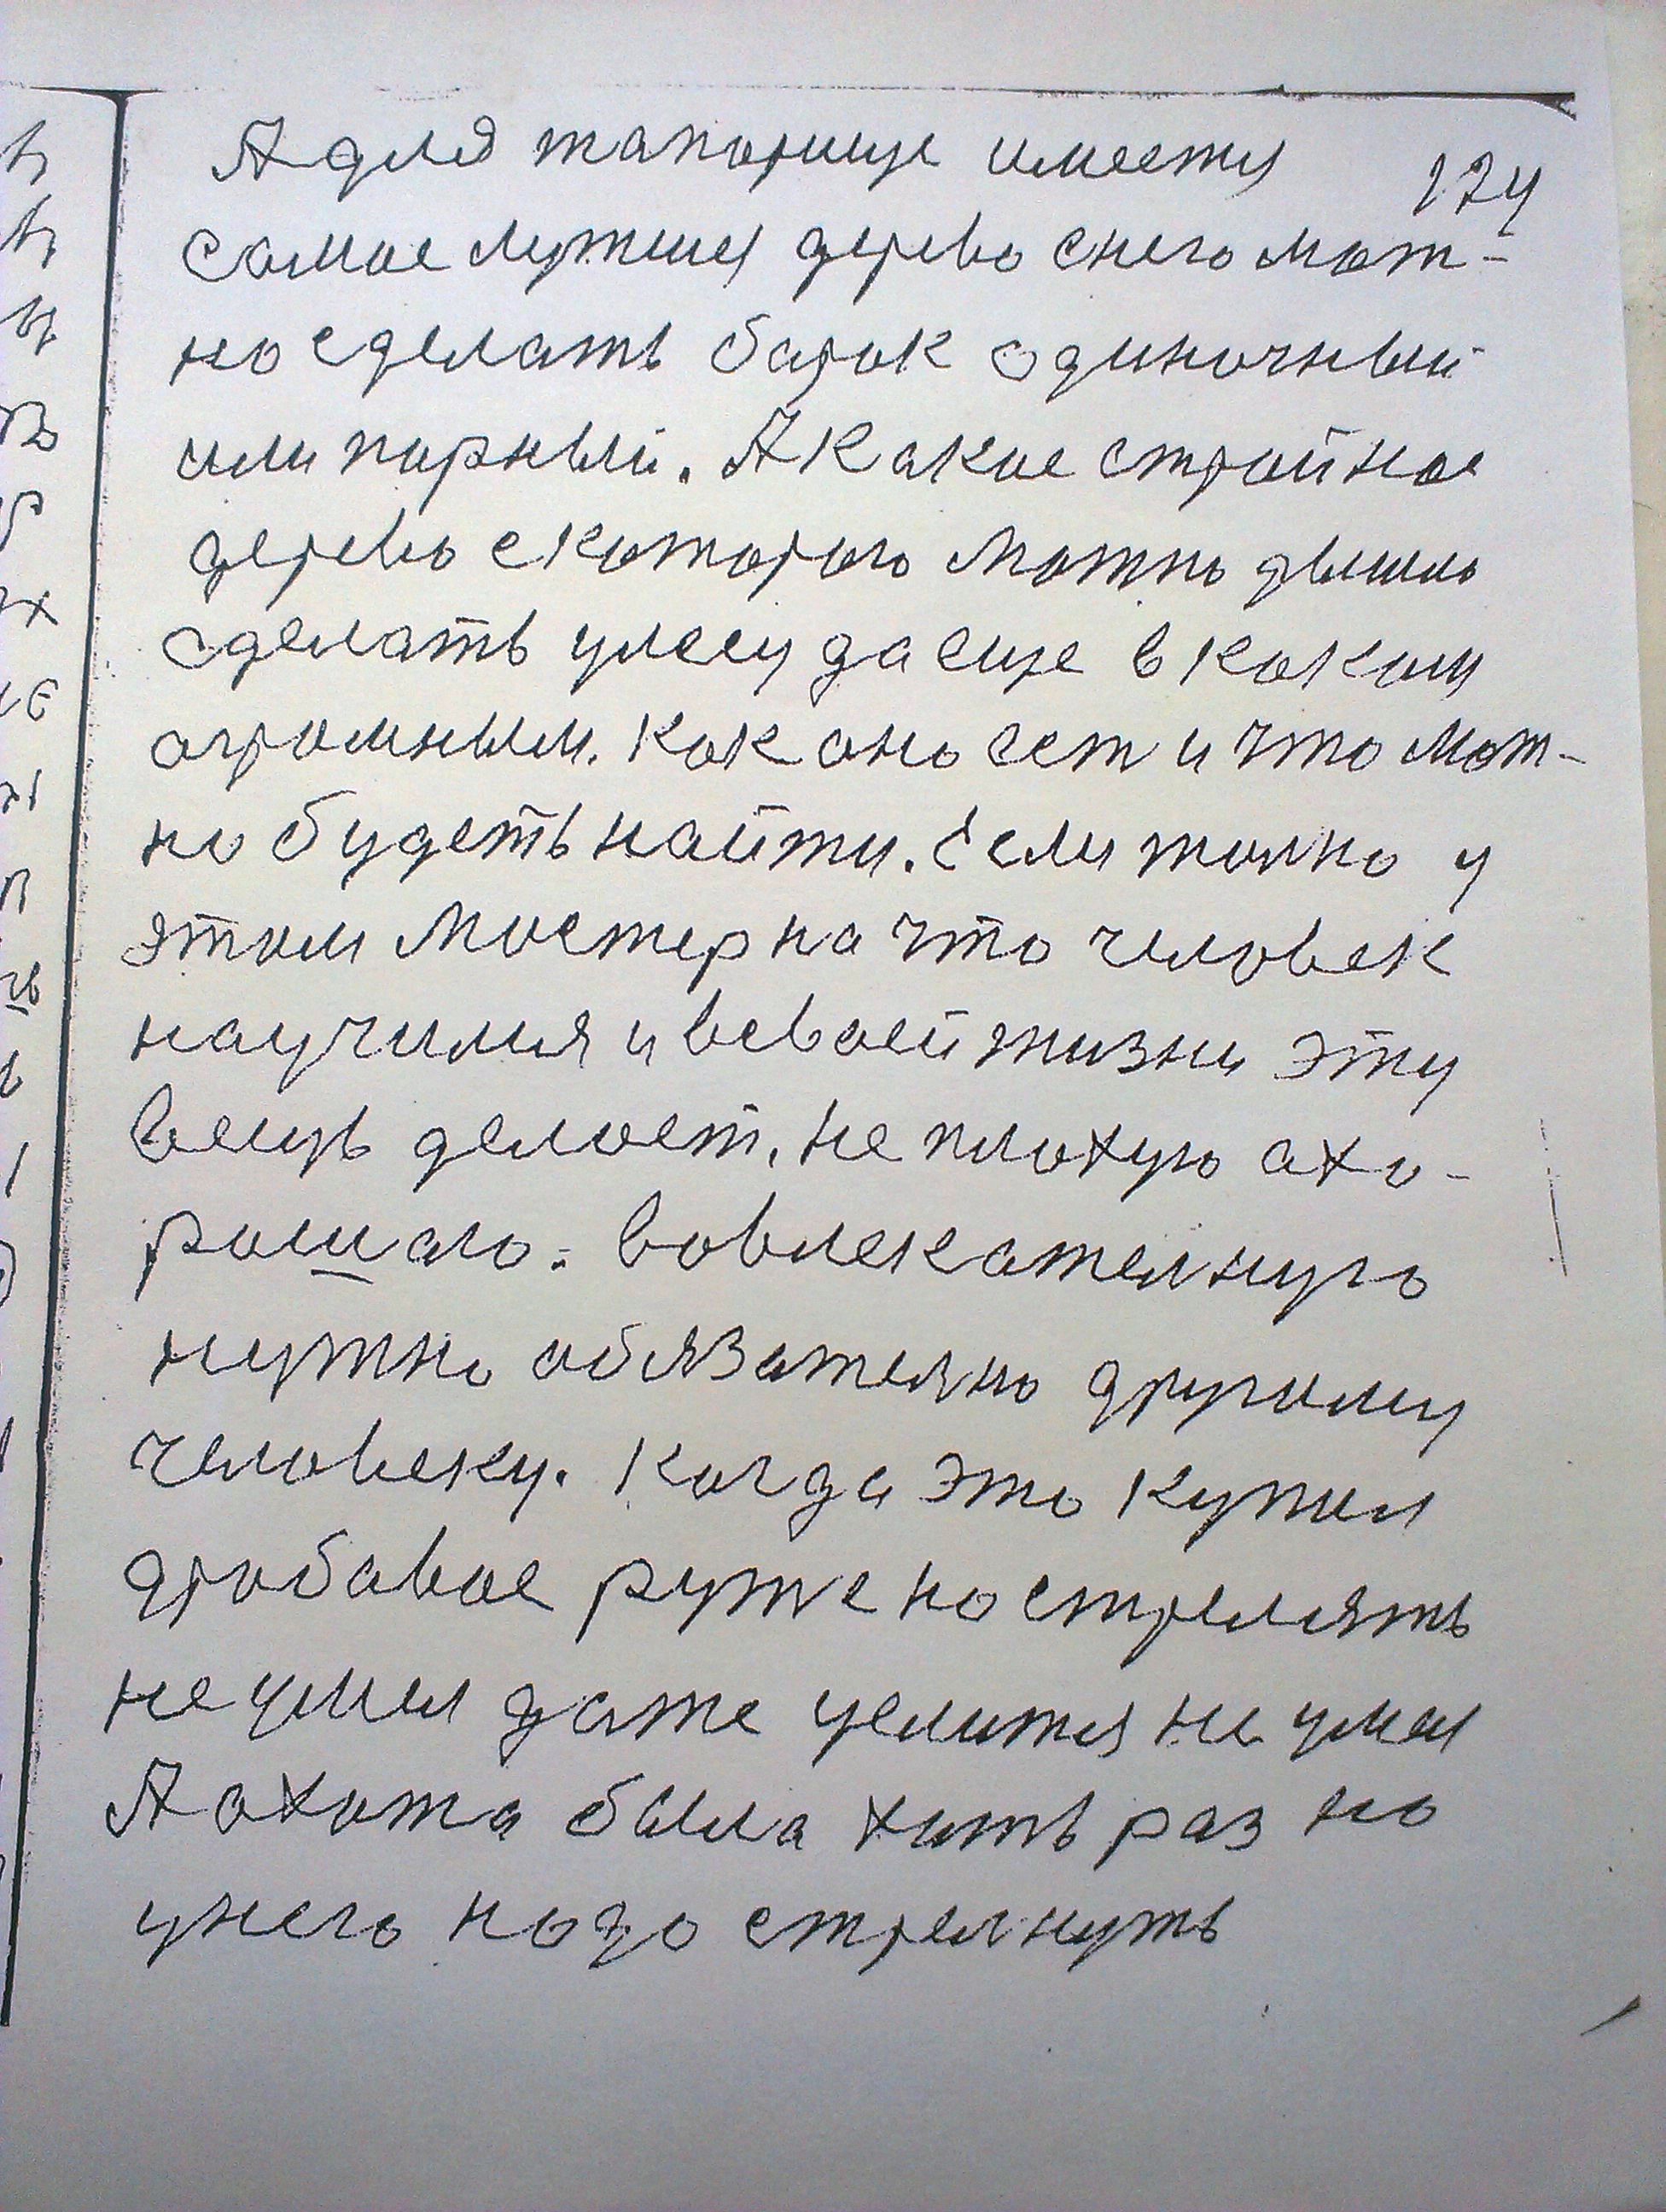 А для тапорище имеетя 174
самое лутшея дерево снего мож-
но сделать барок одиночный
или парный. А какое стройное
дерево скоторого можно дышло
сделать улесу да еще в каком
огромным. Как оно сет и что мож-
но будеть найти. Если толко у
этом мостер на что человек
научился и всвоей жизни эту
вещь делоет, не плохую ахо-
рошаю. вовлекателную
нужно обязателно другому
человеку. Когда это купил
дробавое руже но стрелять
не умел даже целится не умел
А охота была хить раз но
унего надо стрелнуть